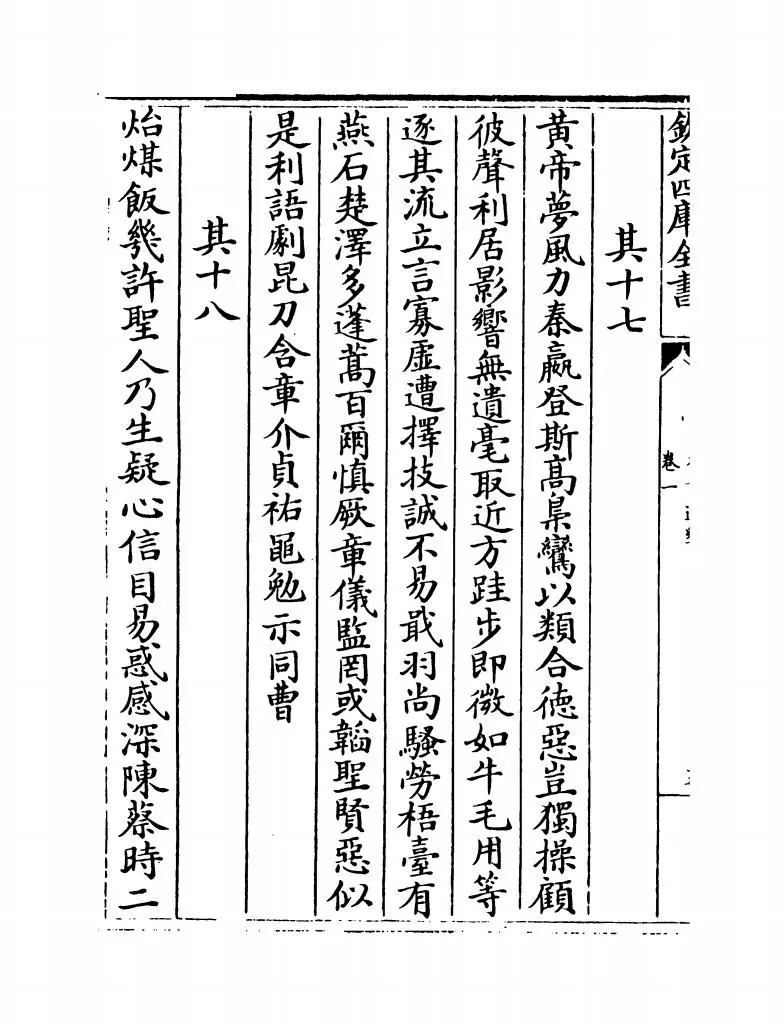 欽定四庫全書
卷一
其十七
黄帝夢風力秦嬴登斯髙梟鸞以類合徳惡豈獨操顧
彼聲利居影響無遺毫取近方跬歩即微如牛毛用等
逐其流立言寡虚遭擇技誠不易戢羽尚騷勞梧臺有
燕石楚澤多蓬蒿百爾慎厥章儀監罔或韜聖賢惡似
是利語劇昆刀含章介貞祐黽勉示同曹
其十八
炲煤飯幾許聖人乃生疑心信目易惑感深陳蔡時二